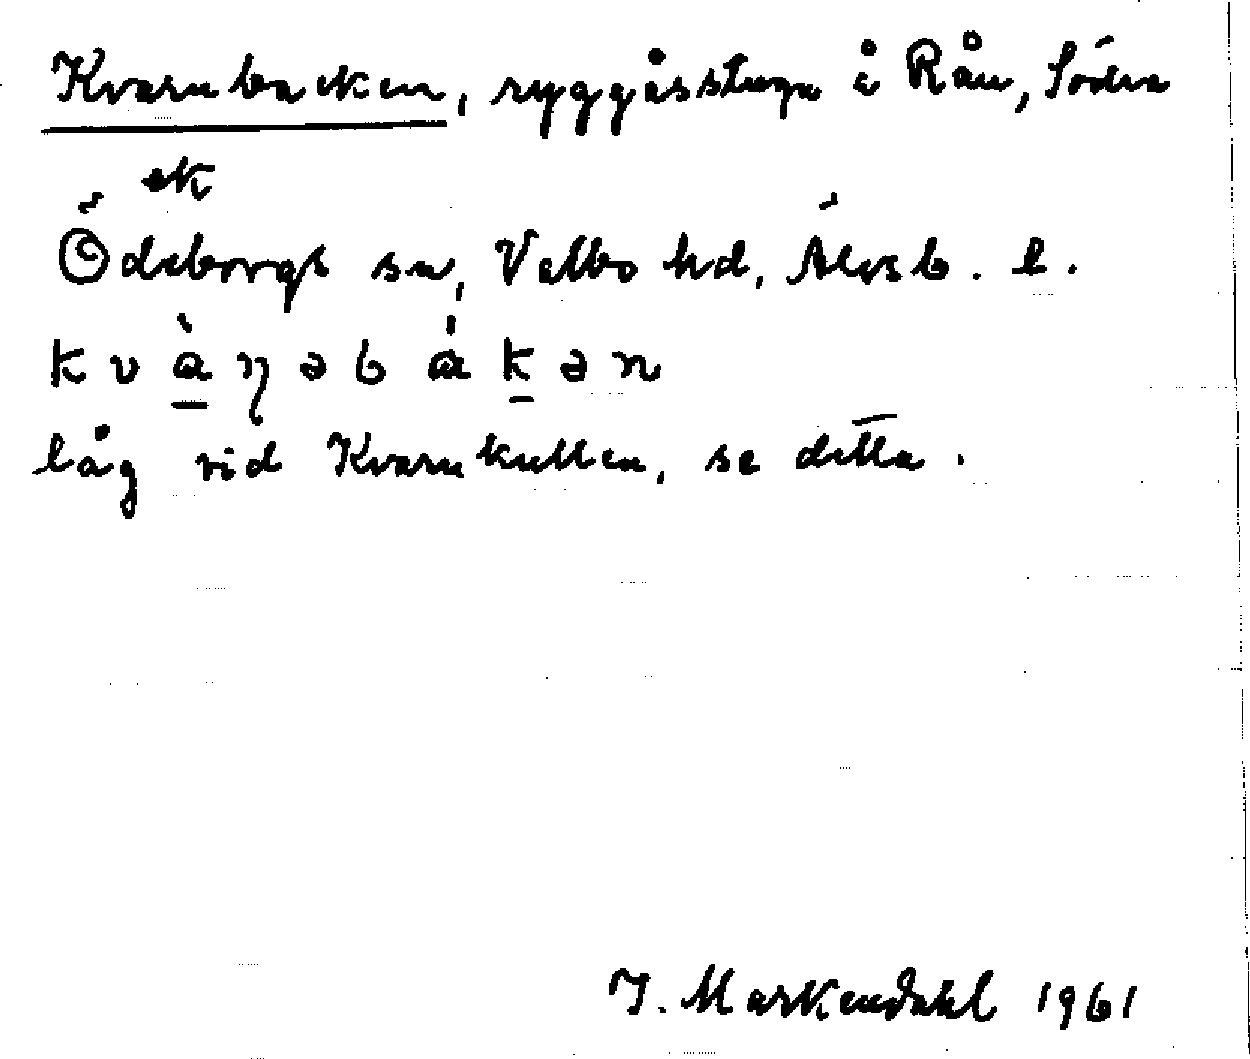 Kvarnbacken, ryggåsstuga å Rån, Södra
ek
Ödeborgs sn, Valbo hd, Älvsb. l.
kvàṇəbákən
låg vid Kvarnkullen, se detta.
I. Markendahl 1961